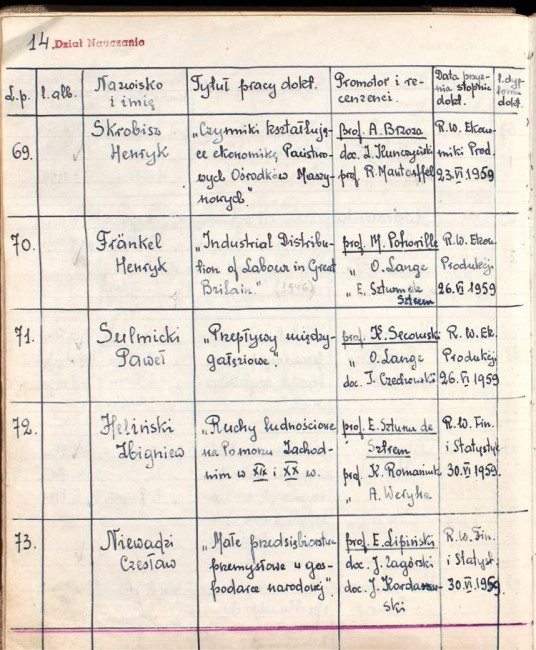 14. Dział Nauczania
L.p. l. alb. Nazwisko i imię Tytuł pracy dokt. Promotor i recenzenci. Data przyznania stopnia dokt. l. dyplomu dokt.
69. Skrobisz Henryk
„Czynniki kształtują-
ce ekonomikę Państwo-
wych Ośrodków Maszy-
nowych."
prof. A. Brzoza
doc. J. Kunczyński
prof. R. Manteuffel
R.W. Ekono-
miki Prod.
23.VI 1959
70. Fränkel
Henryk
„Industrial Distribu-
tion of Labour in Great
Britain." (1946)
prof. M. Pohorille
„ O. Lange
„ E. Szturm de
Sztrem
R.W. Ekon.
Produkcji.
26.VI 1959
71. Sulmicki
Paweł
„Przepływy między-
gałęziowe".
prof. K. Secomski
„ O. Lange
doc. J. Czechowski
R.W. Ek.
Produkcji.
26.VI 1959
72. Heliński
Zbigniew
„Ruchy ludnościowe
na Pomorzu Zachod-
nim w XIX i XX w.
prof. E. Szturm de
Sztrem
prof. K. Romaniuk
„ A. Weryha
R.W. Fin.
i Statystyk
30.VI 1959.
73. Niewadzi
Czesław
„Małe przedsiębiorstwa
przemysłowe w gos-
podarce narodowej".
prof. E. Lipiński
doc. J. Zagórski
doc. J. Kordaszew-
ski
R.W. Fin.
i Statyst.
30.VI.1959.